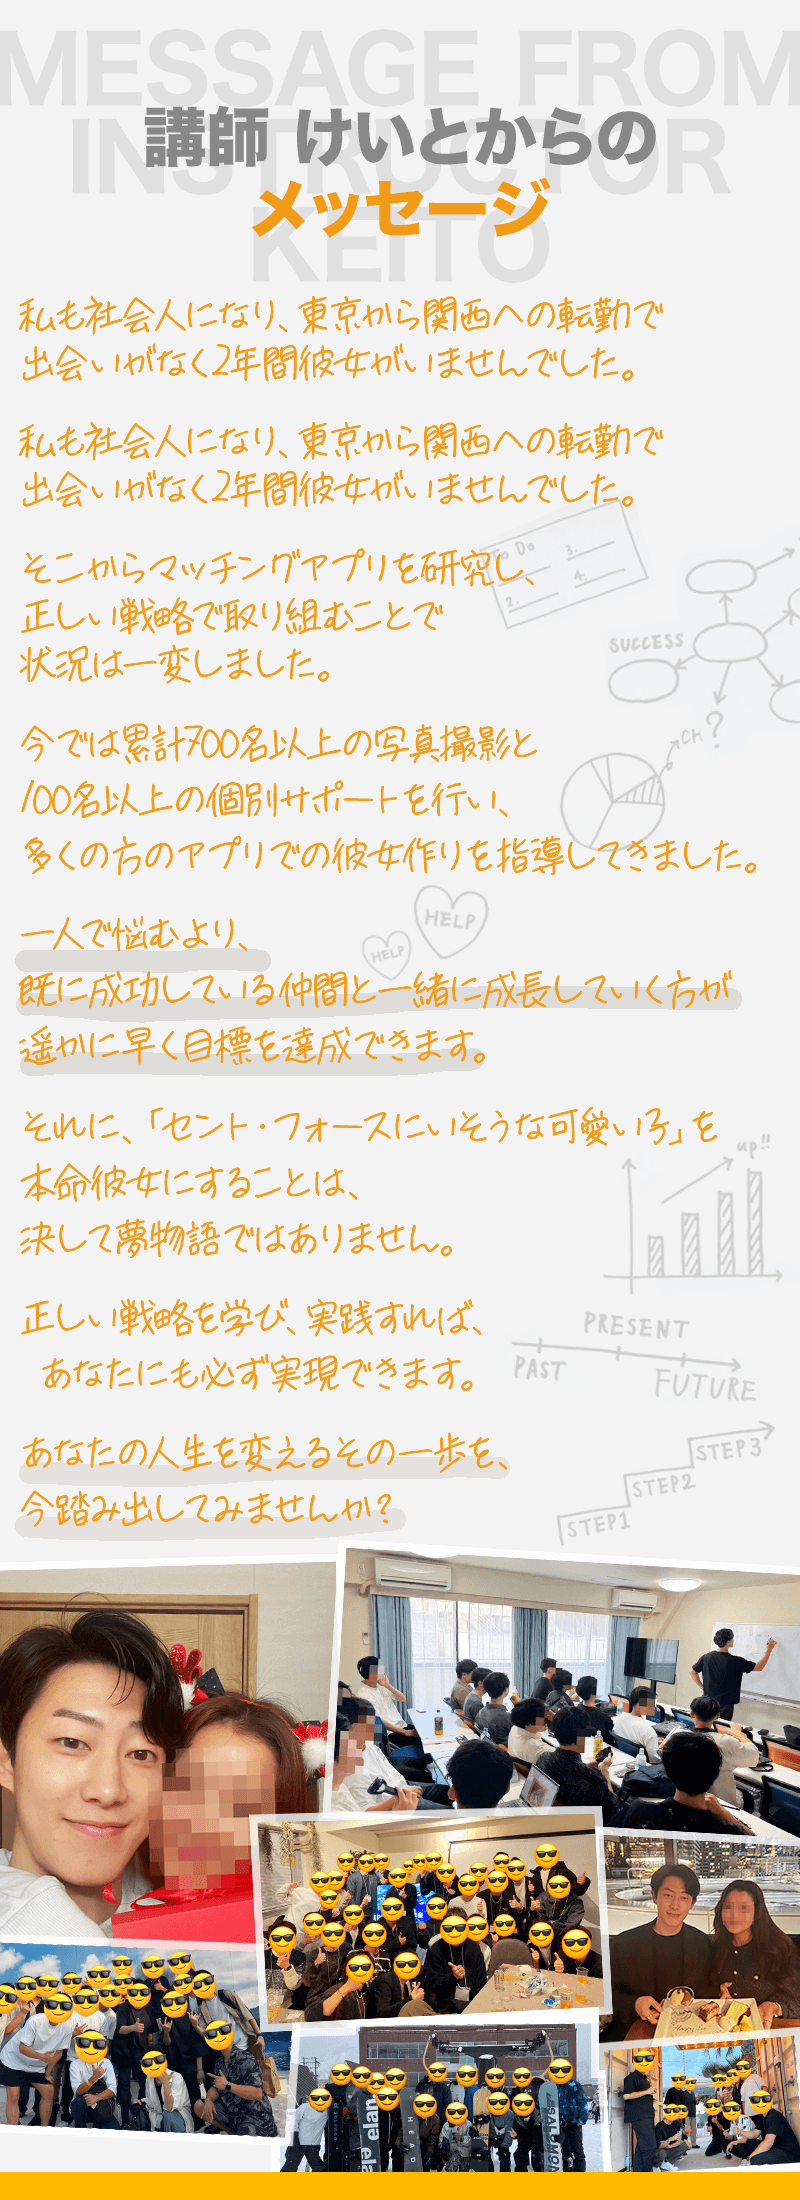 MESSAGE FROM
INSTRUCTOR
KEITO
講師 けいとからの
メッセージ
私も社会人になり、東京から関西への転勤で
出会いがなく2年間彼女がいませんでした。
私も社会人になり、東京から関西への転勤で
出会いがなく2年間彼女がいませんでした。
そこからマッチングアプリを研究し、
正しい戦略で取り組むことで
状況は一変しました。
To Do
3.
2.
4.
SUCCESS
今では累計700名以上の写真撮影と
100名以上の個別サポートを行い、
多くの方のアプリでの彼女作りを指導してきました。
?
HELP
HELP
一人で悩むより、
既に成功している仲間と一緒に成長していく方が
遥かに早く目標を達成できます。
それに、「セント・フォースにいそうな可愛い子」を
本命彼女にすることは、
決して夢物語ではありません。
up!!
正しい戦略を学び、実践すれば、
あなたにも必ず実現できます。
PRESENT
PAST
FUTURE
あなたの人生を変えるその一歩を、
今踏み出してみませんか?
STEP3
STEP2
STEP1
elan
HEAD
SALOMON